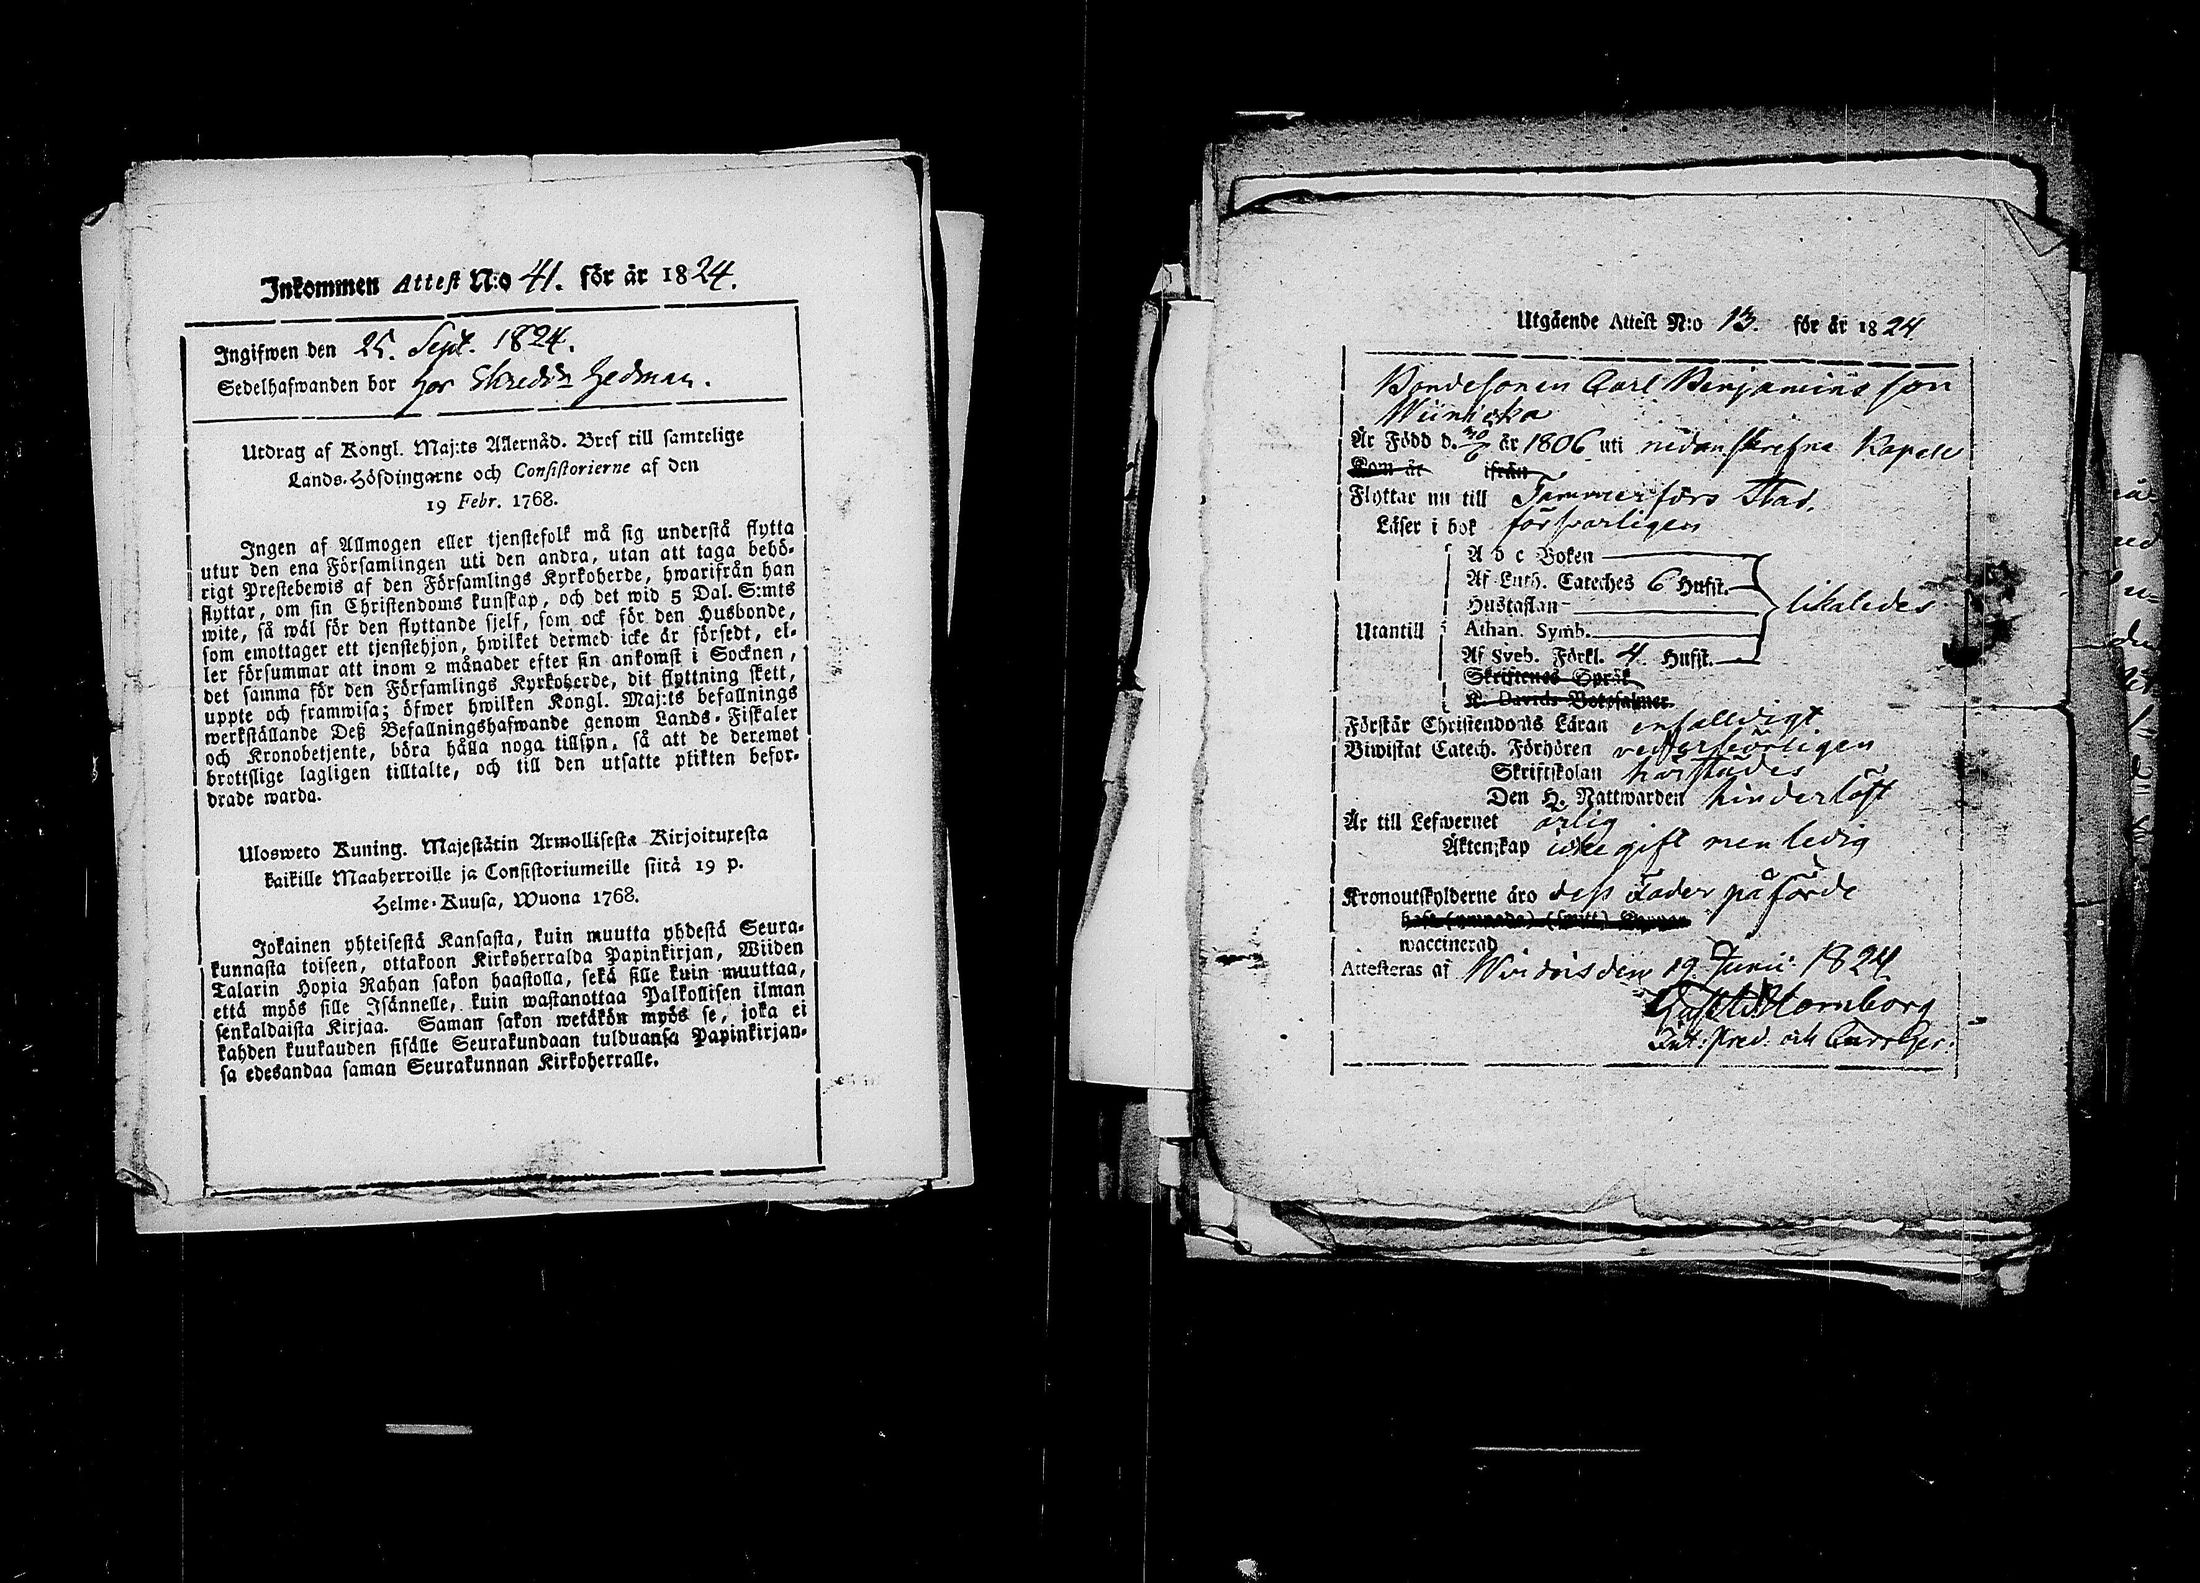 Inkommen Attest N:o 41. för år 1824.
Ingifwen den 25. Sept. 1824.
Sedelhafwanden bor hos Skredd:n Hedman.
Utdrag af Kongl. Maj:ts Allernåd. Bref till samtelige
Lands-Höfdingarne och Consistorierne af den
19 Febr. 1768.
Ingen af Allmogen eller tjenstefolk må sig understå flytta
utur den ena Församlingen uti den andra, utan att taga behö-
rigt Prestebewis af den Församlings Kyrkoherde, hwarifrån han
flyttar, om sin Christendoms kunskap, och det wid 5 Dal. S:mts
wite, så wäl för den flyttande sjelf, som ock för den Husbonde,
som emottager ett tjenstehjon, hwilket dermed icke är försedt, el-
ler försummar att inom 2 månader efter sin ankomst i Socknen,
det samma för den Församlings Kyrkoherde, dit flyttning skett,
uppte och framwisa; öfwer hwilken Kongl. Maj:ts befallnings
werkställande Deß Befallningshafwande genom Lands-Fiskaler
och Kronobetjente, böra hålla noga tillsyn, så att de deremot
brottslige lagligen tilltalte, och till den utsatte plikten befor-
drade warda.
Ulosweto Kuning. Majestätin Armollisesta Kirjoituxesta
kaikille Maaherroille ja Consistoriumeille siitä 19 p.
Helme-Kuusa, Wuona 1768.
Jokainen yhteisestä Kansasta, kuin muutta yhdestä Seura-
kunnasta toiseen, ottakoon Kirkoherralda Papinkirjan, Wiiden
Talarin Hopia Rahan sakon haastolla, sekä sille kuin muuttaa,
että myös sille Isännelle, kuin wastanottaa Palkollisen ilman
senkaldaista Kirjaa. Saman sakon wetäkön myös se, joka ei
kahden kuukauden sisälle Seurakundaan tulduansa Papinkirjan-
sa edesandaa saman Seurakunnan Kirkoherralle.
Utgående Attest N:o 13. för år 1824
Bondesonen Carl Benjamins son
Är Född d. år 1806 uti nedanskrefna Kapell
Kom år ifrån
Flyttar nu till Tammerfors Stad.
Läser i bok försvarligen
A b c Boken
Af Luth. Cateches 6 Hufst.
Hustaflan
likaledes
Utantill Athan. Symb.
Af Sveb. Förkl. 4 Hufst.
Skriftenes Språk
K. Davids Botpsalmer.
Förstår Christendoms Läran enfalldigt
Biwistat Catech. Förhören vederbörligen
Skriftskolan härstädes
Den H. Nattwarden hinderlöst
Är till Lefwernet ärlig
Äktenskap icke gift men ledig
Kronoutskylderne äro dess Fader påförde
waccinerad
Attesteras af Wirdois den 19 Junii 1824
Gust Stornborg